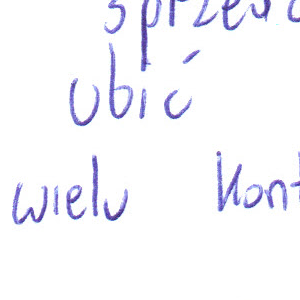 sprzed
ubić
wielu kont